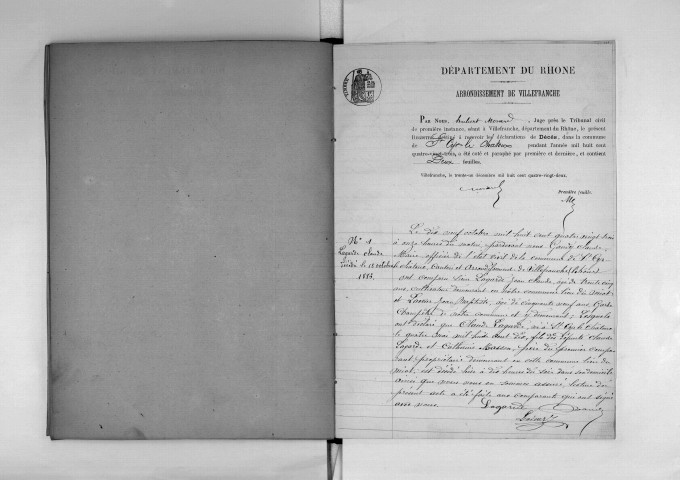 DÉPARTEMENT DU RHONE
ARRONDISSEMENT DE VILLEFRANCHE
PAR NOUS, Morard, Juge près le Tribunal civil
de première instance, séant à Villefranche, département du Rhône, le présent
à recevoir les déclarations de Décès, dans la commune
de St Cyr le Chatoux pendant l'année mil huit cent
quatre-vingt-trois, a été coté et paraphé par première et dernière, et contient
Deux feuilles.
Villefranche, le trente-un décembre mil huit cent quatre-vingt-deux.
Première feuille.
N° 1
Lagarde Claude
décédé le 18 octobre
1883.
Le dix neuf octobre mil huit cent quatre vingt trois
à onze heures du matin, pardevant nous Claude
Maire officier de l'état civil de la commune de St Cyr
le Chatoux, Canton et Arrondissement de Villefranche (Rhône)
ont comparu Lagarde Jean Claude, âgé de trente cinq
ans, cultivateur demeurant en notre commune lieu du
et Jean Baptiste, âgé de cinquante neuf ans Garde
Champêtre de notre commune et y demeurant; Lesquels
ont déclaré que Claude Lagarde, né à St Cyr le Chatoux
le quatre mai mil huit cent dix, fils des défunts Claude
Lagarde et Catherine père du premier compa-
rant propriétaire demeurant en cette commune lieu du
est décédé hier à dix heures du soir dans son domicile
ainsi que nous nous en sommes assuré, lecture du
présent acte a été faite aux comparants qui ont signé
avec nous.
Lagarde